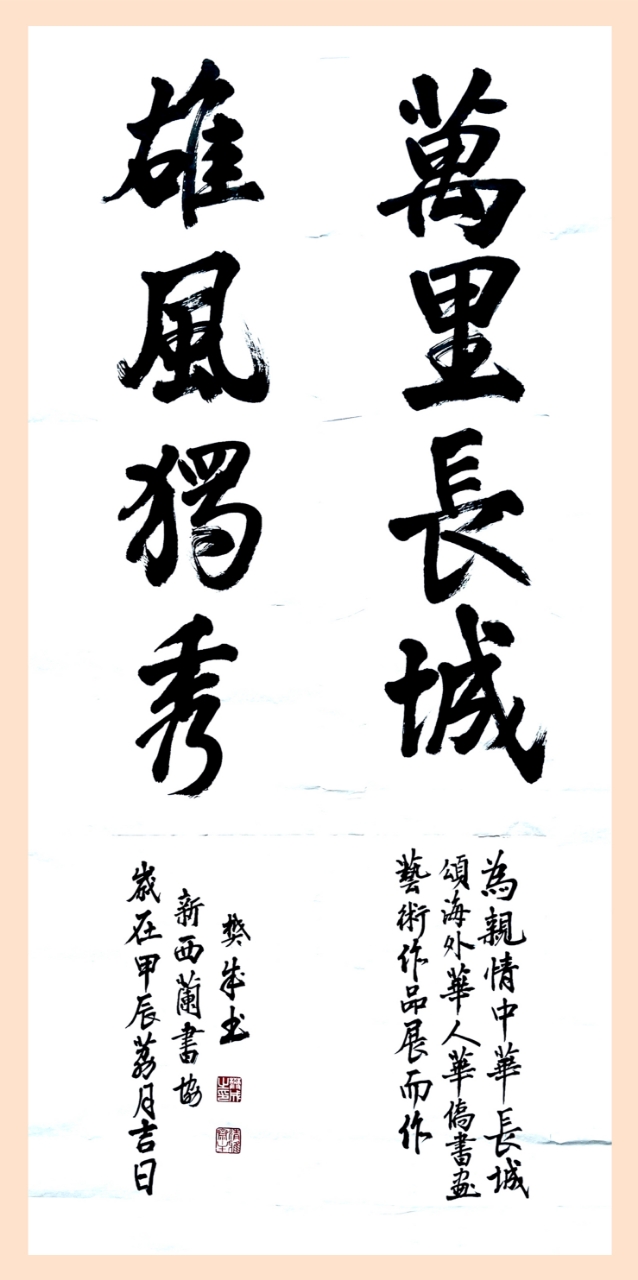 萬里長城
雄風獨秀
為親情中華長城
頌海外華人華僑書画
藝術作品展而作
樊成书
新西蘭書協
歲在甲辰荔月吉日